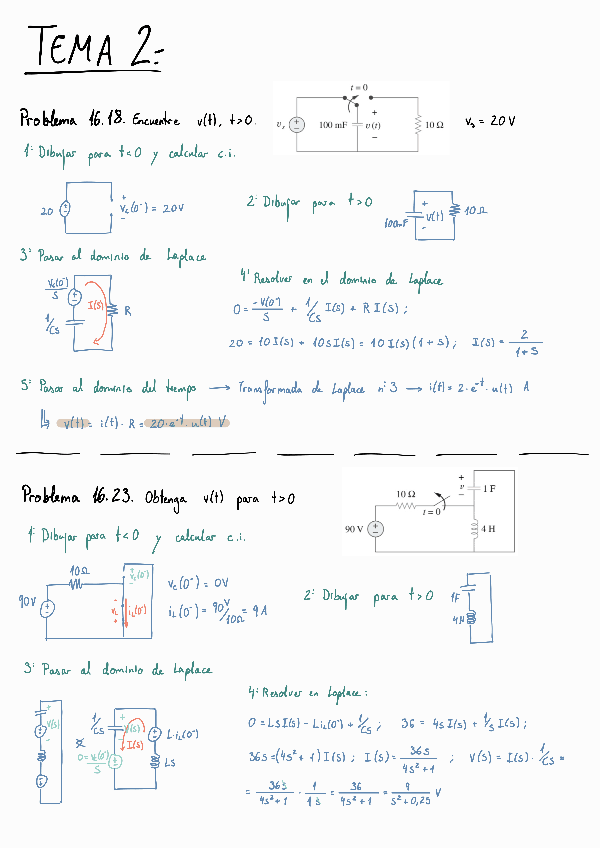 TEMA 2:
t = 0
Problema 16.18. Encuentre v(t), t>0.
vs
100 mF
+
v(t)
−
10 Ω
vs = 20 V
1º Dibujar para t<0 y calcular c.i.
20
+
vc(0⁻) = 20V
−
2º Dibujar para t>0
100mF
+
v(t)
−
10Ω
3º Pasar al dominio de Laplace
vc(0⁻)/S
1/CS
I(s)
R
4º Resolver en el dominio de Laplace
0 = -V(0⁻)/S + 1/CS I(s) + R I(s) ;
20 = 10 I(s) + 10s I(s) = 10 I(s) (1 + s) ; I(s) = 2/(1+s)
5º Pasar al dominio del tiempo → Transformada de Laplace nº3 → i(t) = 2·e⁻ᵗ·u(t) A
↳ v(t) = i(t) · R = 20·e⁻ᵗ·u(t) V
Problema 16.23. Obtenga v(t) para t>0
10 Ω
t = 0
+
v
−
1 F
90 V
4 H
1º Dibujar para t<0 y calcular c.i.
10Ω
90V
+
vc(0⁻)
−
vL
iL(0⁻)
vc(0⁻) = 0V
iL(0⁻) = 90V/10Ω = 9 A
2º Dibujar para t>0
1F
4H
3º Pasar al dominio de Laplace
+
V(s)
−
1/CS
0 = Vc(0⁻)/S
V(s)
I(s)
L·iL(0⁻)
LS
4º Resolver en Laplace:
0 = LS I(s) − L iL(0⁻) + 1/CS ; 36 = 4s I(s) + 1/s I(s) ;
36s = (4s² + 1) I(s) ; I(s) = 36s/(4s²+1) ; V(s) = I(s) · 1/CS =
= 36s/(4s²+1) · 1/1s = 36/(4s²+1) = 9/(s²+0,25) V